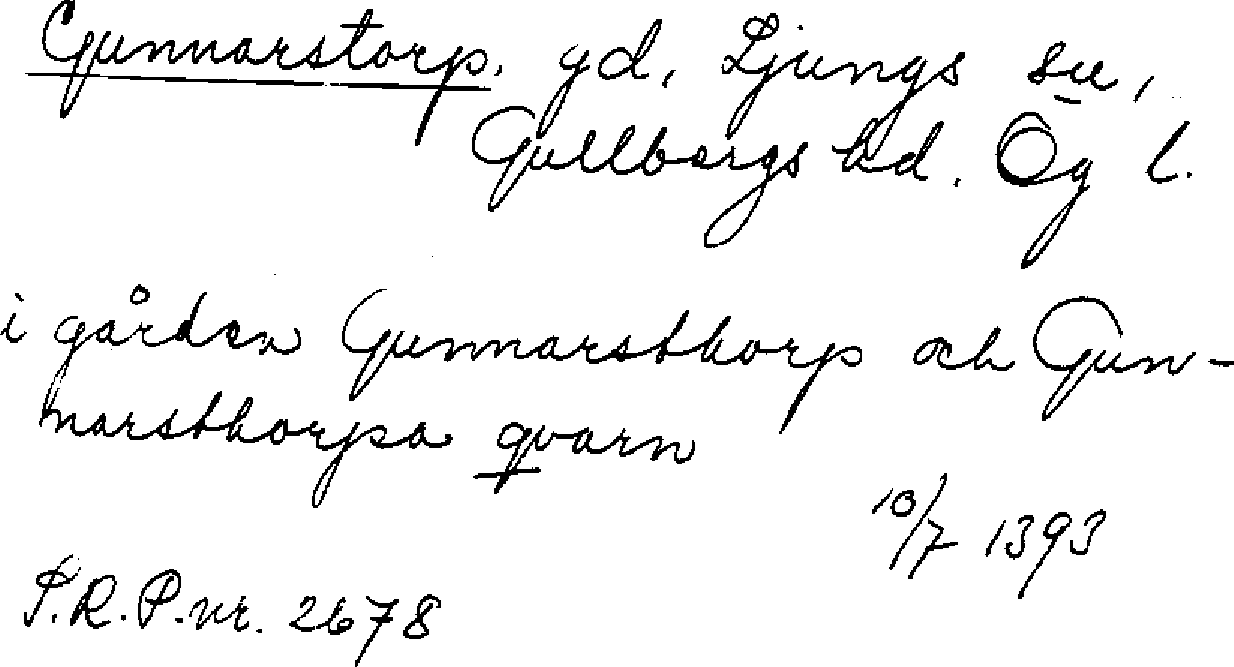 Gunnarstorp, gd, Ljungs sn,
Gullbergs hd. Ög l.
i gården Gunnarsthorp och Gun-
narsthorpa qvarn
10/7 1393
S.R.P. nr. 2678